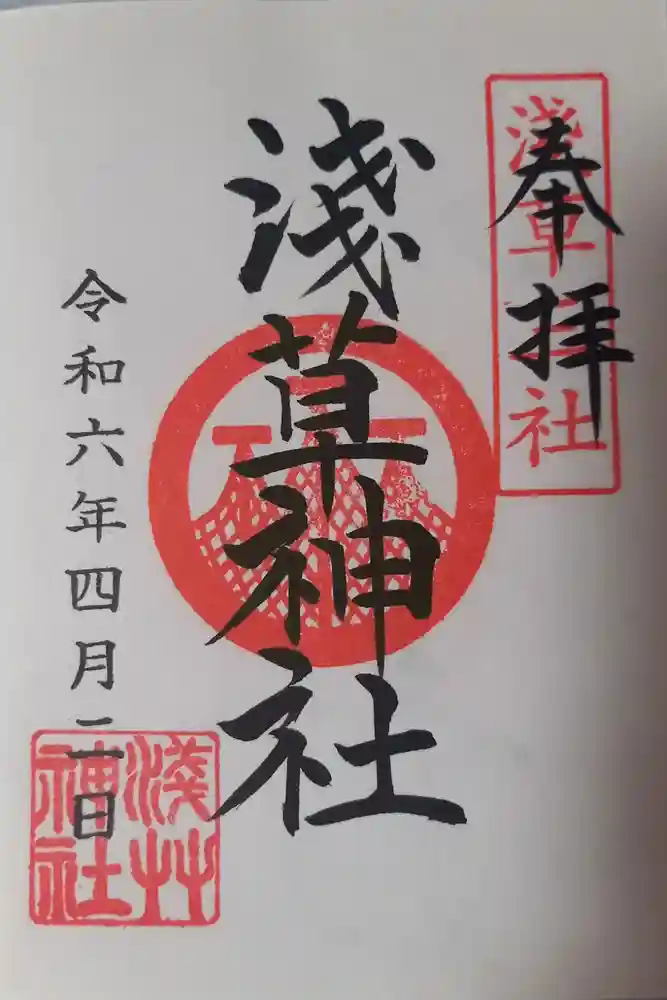 奉拝
浅草三社
浅草神社
令和六年四月二日
淺草神社